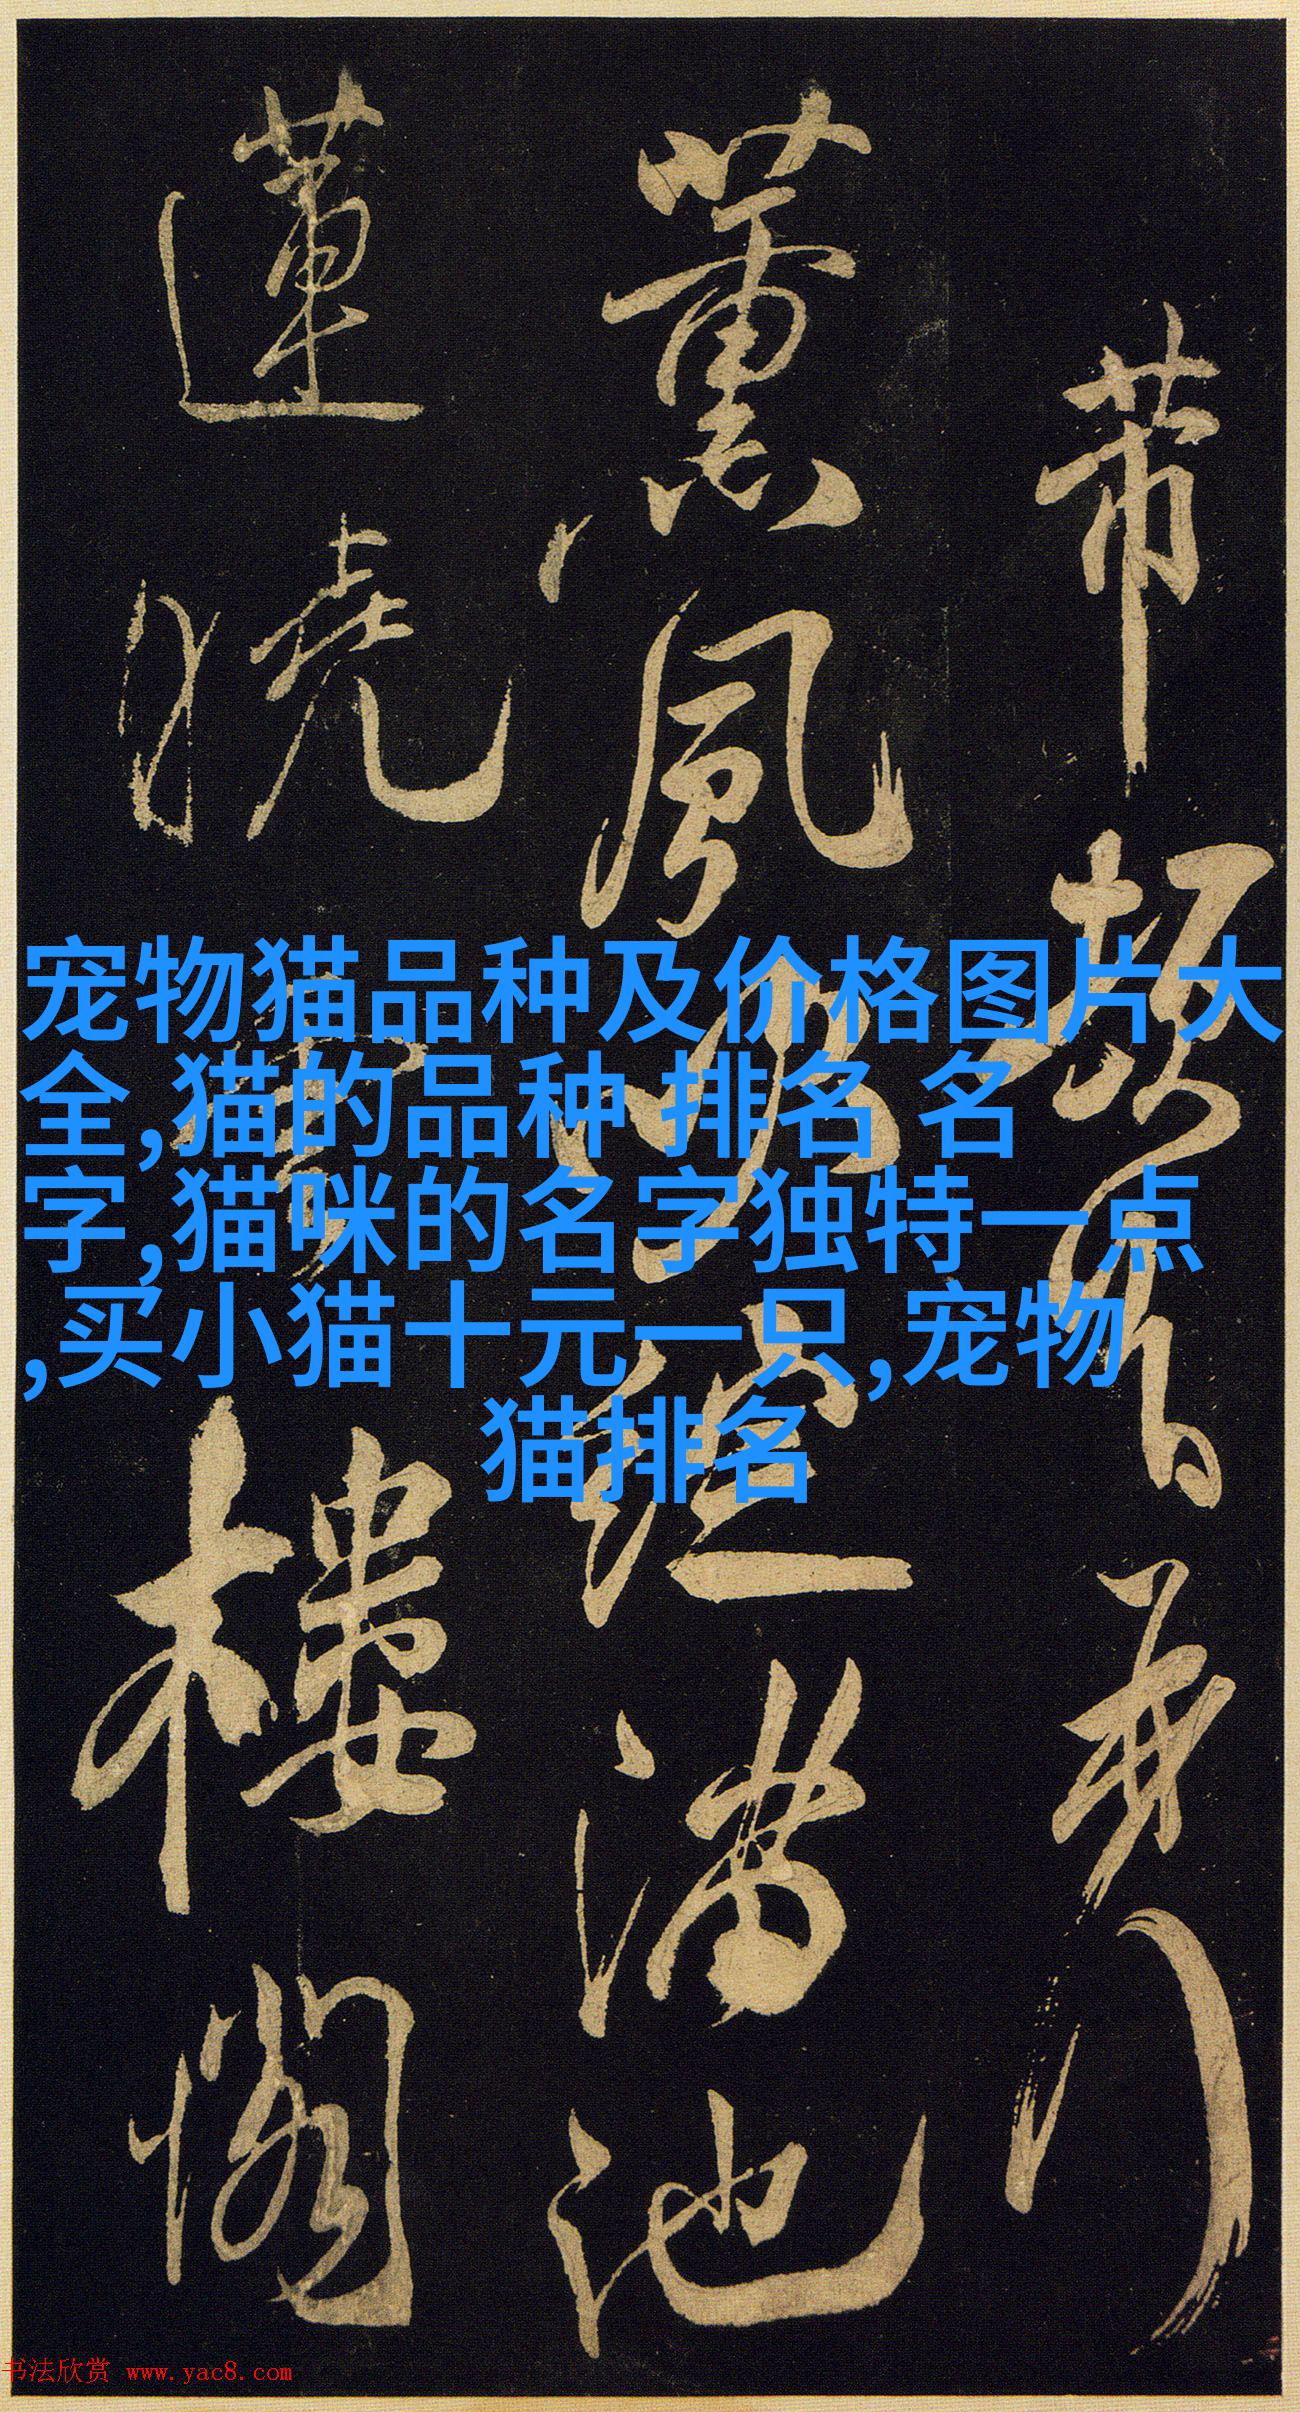 带
薰風
滿池
蓮曉
樓閣
宠物猫品种及价格图片大
全,猫的品种 排名 名
字,猫咪的名字独特一点
,买小猫十元一只,宠物
猫排名
书法欣赏 www.yac8.com